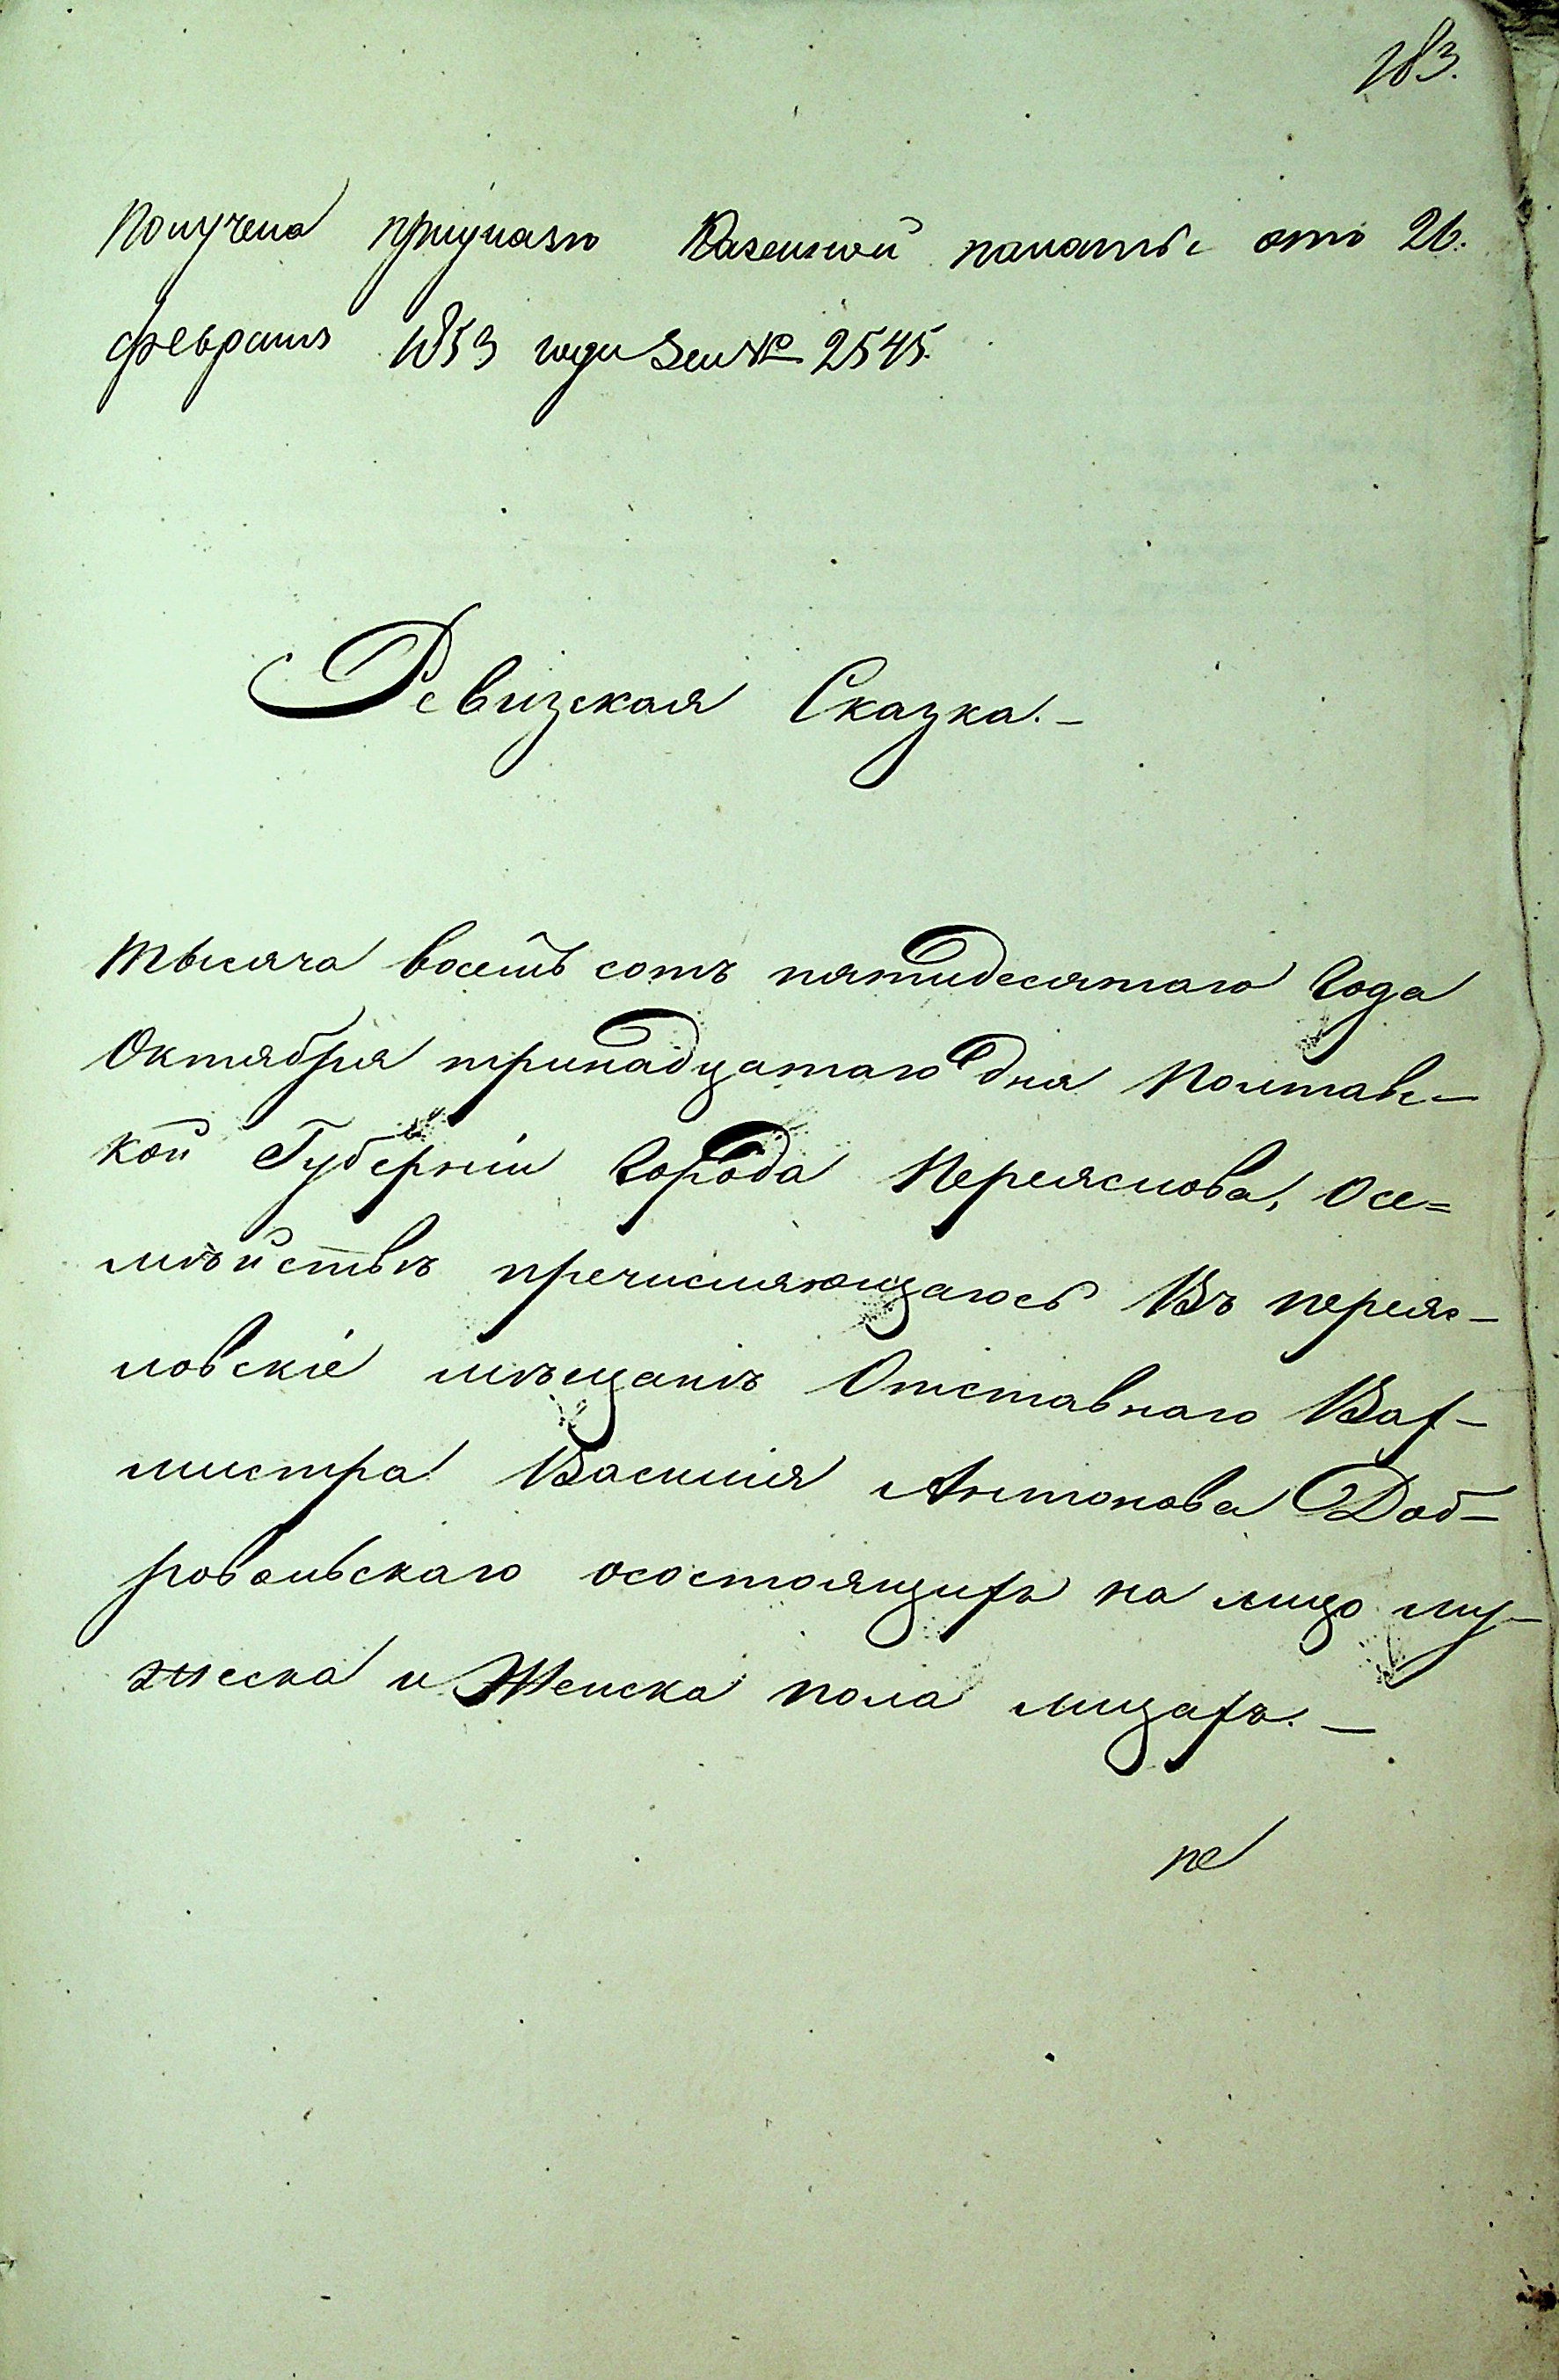 183.
Получена приуказѣ Казенной палаты отъ 26.
февраля 1853 года за № 2545.
Ревизская Сказка.-
Тысяча восемь сотъ пятидесятаго Года
Октября тринадцатаго дня Полтавс-
кой Губерніи Города Переяслова, осе=
мѣйствѣ пречисляющагося Въ переяс-
ловскіе мѣщанѣ Отставнаго Вах-
мистра Василия Антонова Доб-
ровольскаго осостоящихъ на лицо му-
жеска и Женска пола лицахъ. -